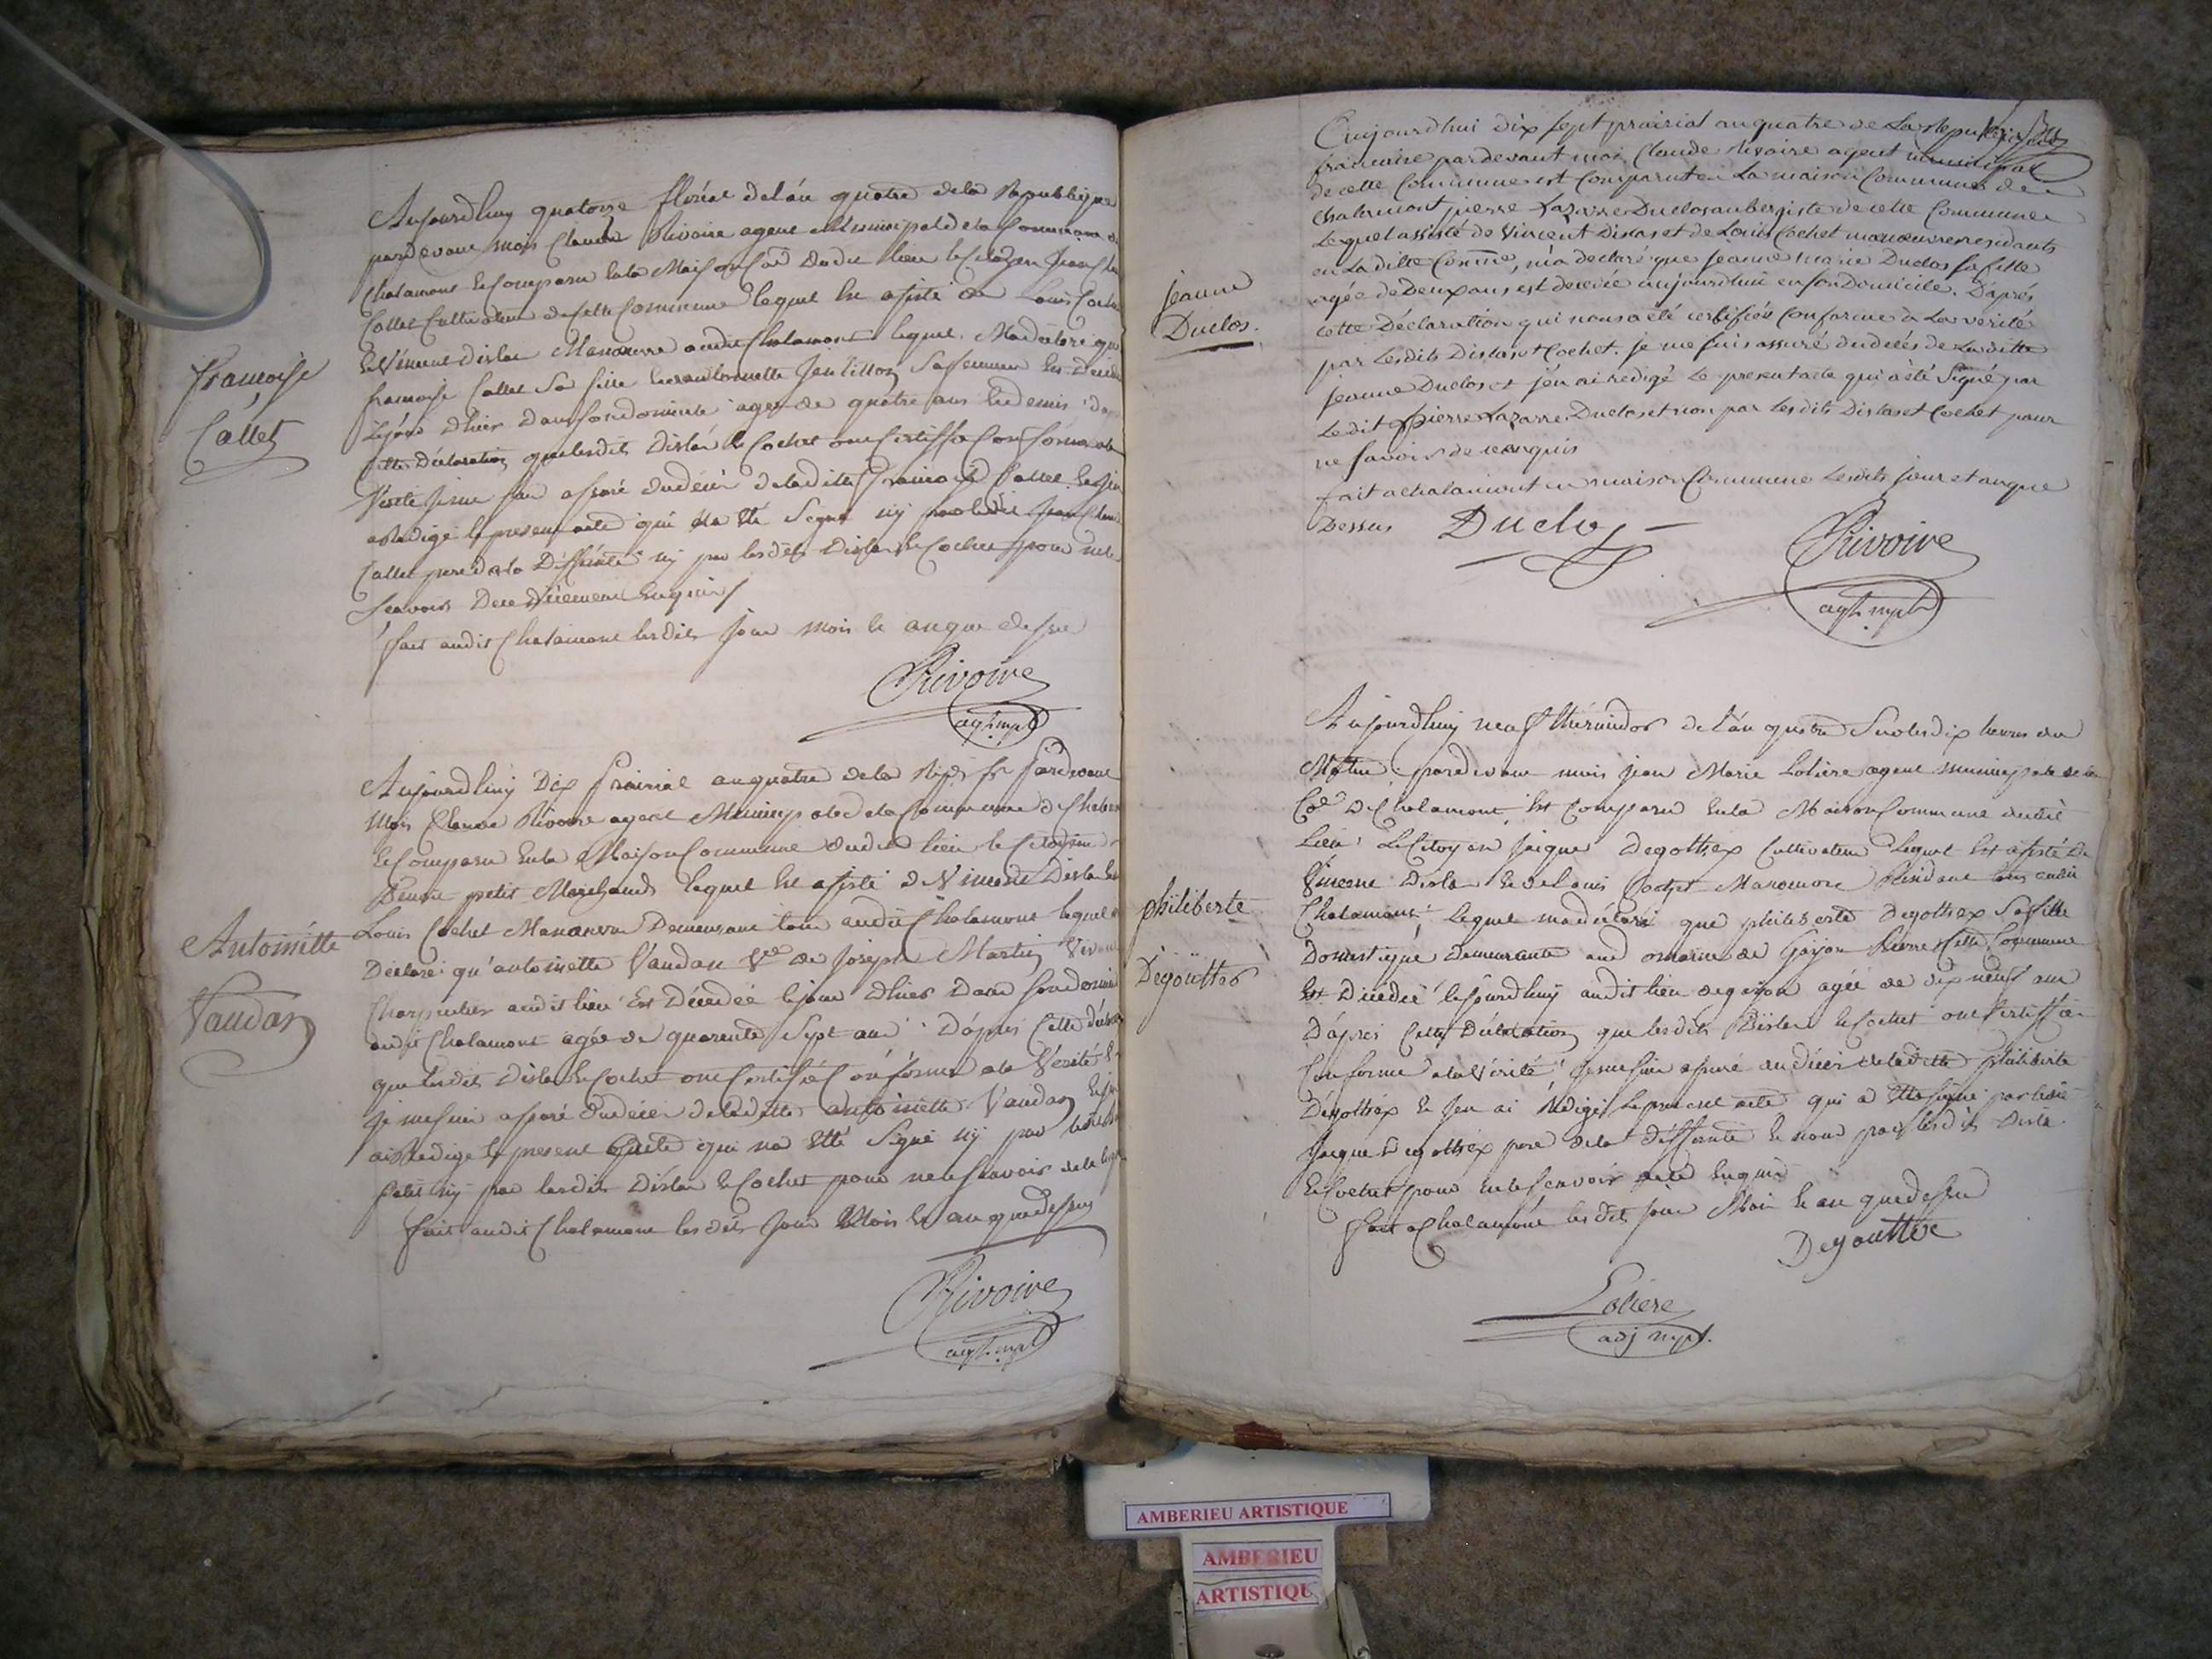 françoise
Callet
Aujourdhuy quatorze floréal de l'an quatre de la Republique
pardevant mois Claude Rivoire agent Municipal de la Commune de
Chalamont Est Comparu En la Maison dudit lieu le Citoyen
Callet Cultivateur de Cette Commune lequel Est assisté de Louis Cochet
Et Vincent Dislas Manoeuvre audit Chalamont lequel Ma déclaré que
françoise Callet Sa fille Sa femme Est Décédé
le jour d'hier dans son domicile agée de quatre ans Et demis
Cette Déclaration que lesdits Dislas Et Cochet ont Certiffié Conforme a la
Vérité Je me suis assuré du décès de ladite françoise Callet
ai Redigé le present acte qui na Eté Signé ny par ledit
Callet pere de la Deffunte ny par lesdits Dislas Et Cochet pour ne le
Scavoir De ce Enquis
fait audit Chalamont lesdits jour mois Et an que dessus
Rivoire
agt. mpl
Antoinette
Vaudan
Aujourdhuy Dix Prairial an quatre de la Rép. fr. Pardevant
Mois Claude Rivoire agent Municipal de la Commune de Chalamont
Est Comparu En la Maison Commune dudit lieu le Citoyen
petit Marchand lequel Est assisté de Vincent Dislas Et
Louis Cochet Manoeuvre Demeurant tous audit Chalamont lequel
Déclaré qu'antoinette Vaudan Vve de Joseph Martin Vivant
Charpentier audit lieu Est Décédée le jour d'hier Dans Son domicile
audit Chalamont agée de quarente Sept ans D'après Cette
que lesdits Dislas Et Cochet ont Certifié Conforme a la Vérité
Je me suis assuré du décès de ladite antoinette Vaudan
ai Redigé le present acte qui na Eté Signé ny par
petit ny par lesdits Dislas Et Cochet pour ne le Scavoir
fait audit Chalamont les dits jour Mois Et an que dessus
Rivoire
agt. mpl
jeanne
Duclos.
Aujourdhui dix sept prairial an quatre de La Republique
francaise pardevant moi Claude Rivoire agent municipal
de cette Commune est Comparut en La maison Commune de
Chalamont pierre Lazarre Duclos aubergiste de cette Commune
Lequel assisté de Vincent Dislas et de Louis Cochet manoeuvre residants
en La dite Comne, m'a declaré que jeanne marie Duclos sa fille
agée de Deux ans, est decedée aujourdhui en son Domicile. D'après
cette Déclaration qui nous a été certifiée Conforme à La vérité
par Lesdits Dislas et Cochet. je me suis assuré du décés de Laditte
jeanne Duclos et j'en ai redigé Le present acte qui a été Signé par
Le dit pierre Lazarre Duclos et non par Lesdits Dislas et Cochet pour
ne savoir de ce enquis
fait a chalamont en maison Commune Lesdits jour et an que
Dessus Duclos
Rivoire
agt. mpl
philiberte
Degouttes
Aujourdhuy neuf thermidor de l'an quatre Sur les dix heures du
Matin pardevant mois jean Marie Loliere agent municipale de la
Cne De Chalamont, Est Comparu En la Maison Commune dudit
Lieu Le Citoyen jaique Degottex Cultivateur Lequel Est assisté De
Vincent Dislas Et de Louis Cochet Manoeuvre Résidant tous audit
Chalamont lequel ma déclaré que philiberte Degottex Sa fille
Domestique Demeurante au domaine de Cette Commune
Est Décédée le jourdhuy audit lieu agée de dix neuf ans
D'après Cette Déclaration que lesdits Dislas Et Cochet ont Certiffié
Conforme a la Vérité, Je me suis assuré du décès de ladite philiberte
Dégottex Et Jen ai Redigé le present acte qui a Eté signé par ledit
Jaique Degottex pere de la deffunte Et non par lesdits Dislas
Et Cochet pour ne le Scavoir de ce Enquis
fait a Chalamont les dits jour Mois Et an que dessus
Degouttee
Loliere
adj mpl.
AMBERIEU ARTISTIQUE
AMBERIEU
ARTISTIQU